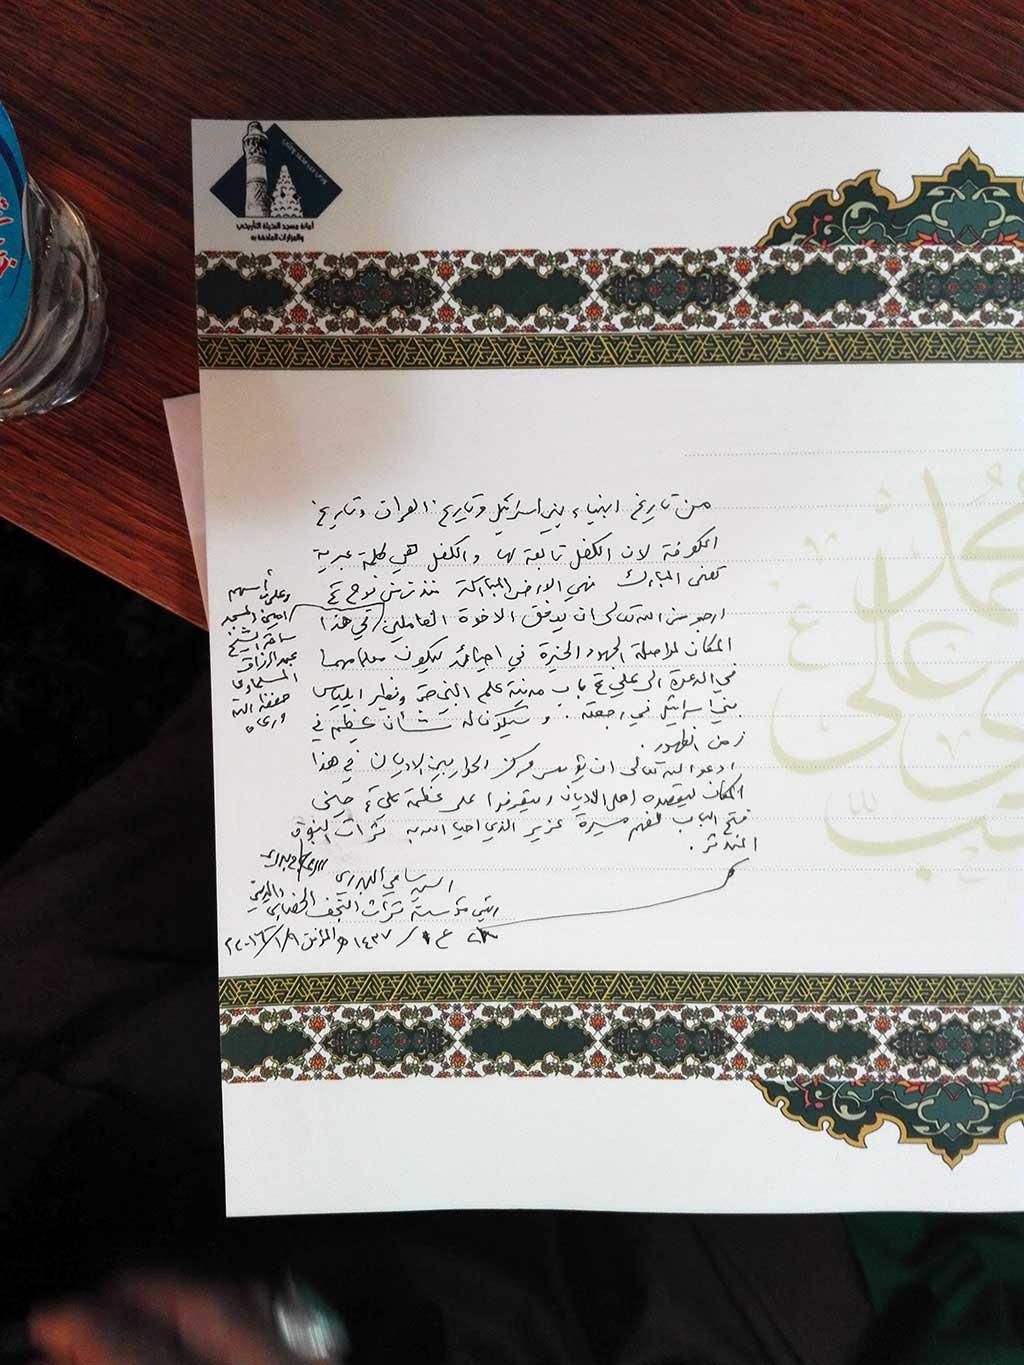 أمانة مسجد النخيلة التأريخي
والمزارات الملحقة به
من تاريخ انبياء بني اسرائيل وتاريخ الفرات وتاريخ
الكوفة لان الكفل تابعة لها والكفل هي كلمة عبرية
تعني المبارك فهي الارض المباركة منذ زمن نوح ع
ارجو من الله تعالى ان يوفق الاخوة العاملين في هذا
المكان لمواصلة الجهود الخيرة في احيائه ليكون معلما مهما
في الدعوة الى علي ع باب مدينة علم النبي ص ونظير ايلياس
بني اسرائيل في رجعته . وسيكون له شأن عظيم في
زمن الظهور .
ادعو الله تعالى ان يؤسس مركز الحوار بين الاديان في هذا
المكان ليقصده اهل الاديان وليتعرفوا على عظمة علي ع حين
فتح الباب لفهم مسيرة عزير الذي احيا الله به تراث النبوة
المندثر .
وعلى رأسهم
امين المسجد
الشيخ
عبد الرزاق
المسلماوي
حفظه الله
ورعاه
السيد سامي البدري
رئيس مؤسسة تراث النجف الحضاري والديني
١٤٣٧ هـ الموافق ٢٠١٦/١/٩
محمد
علي